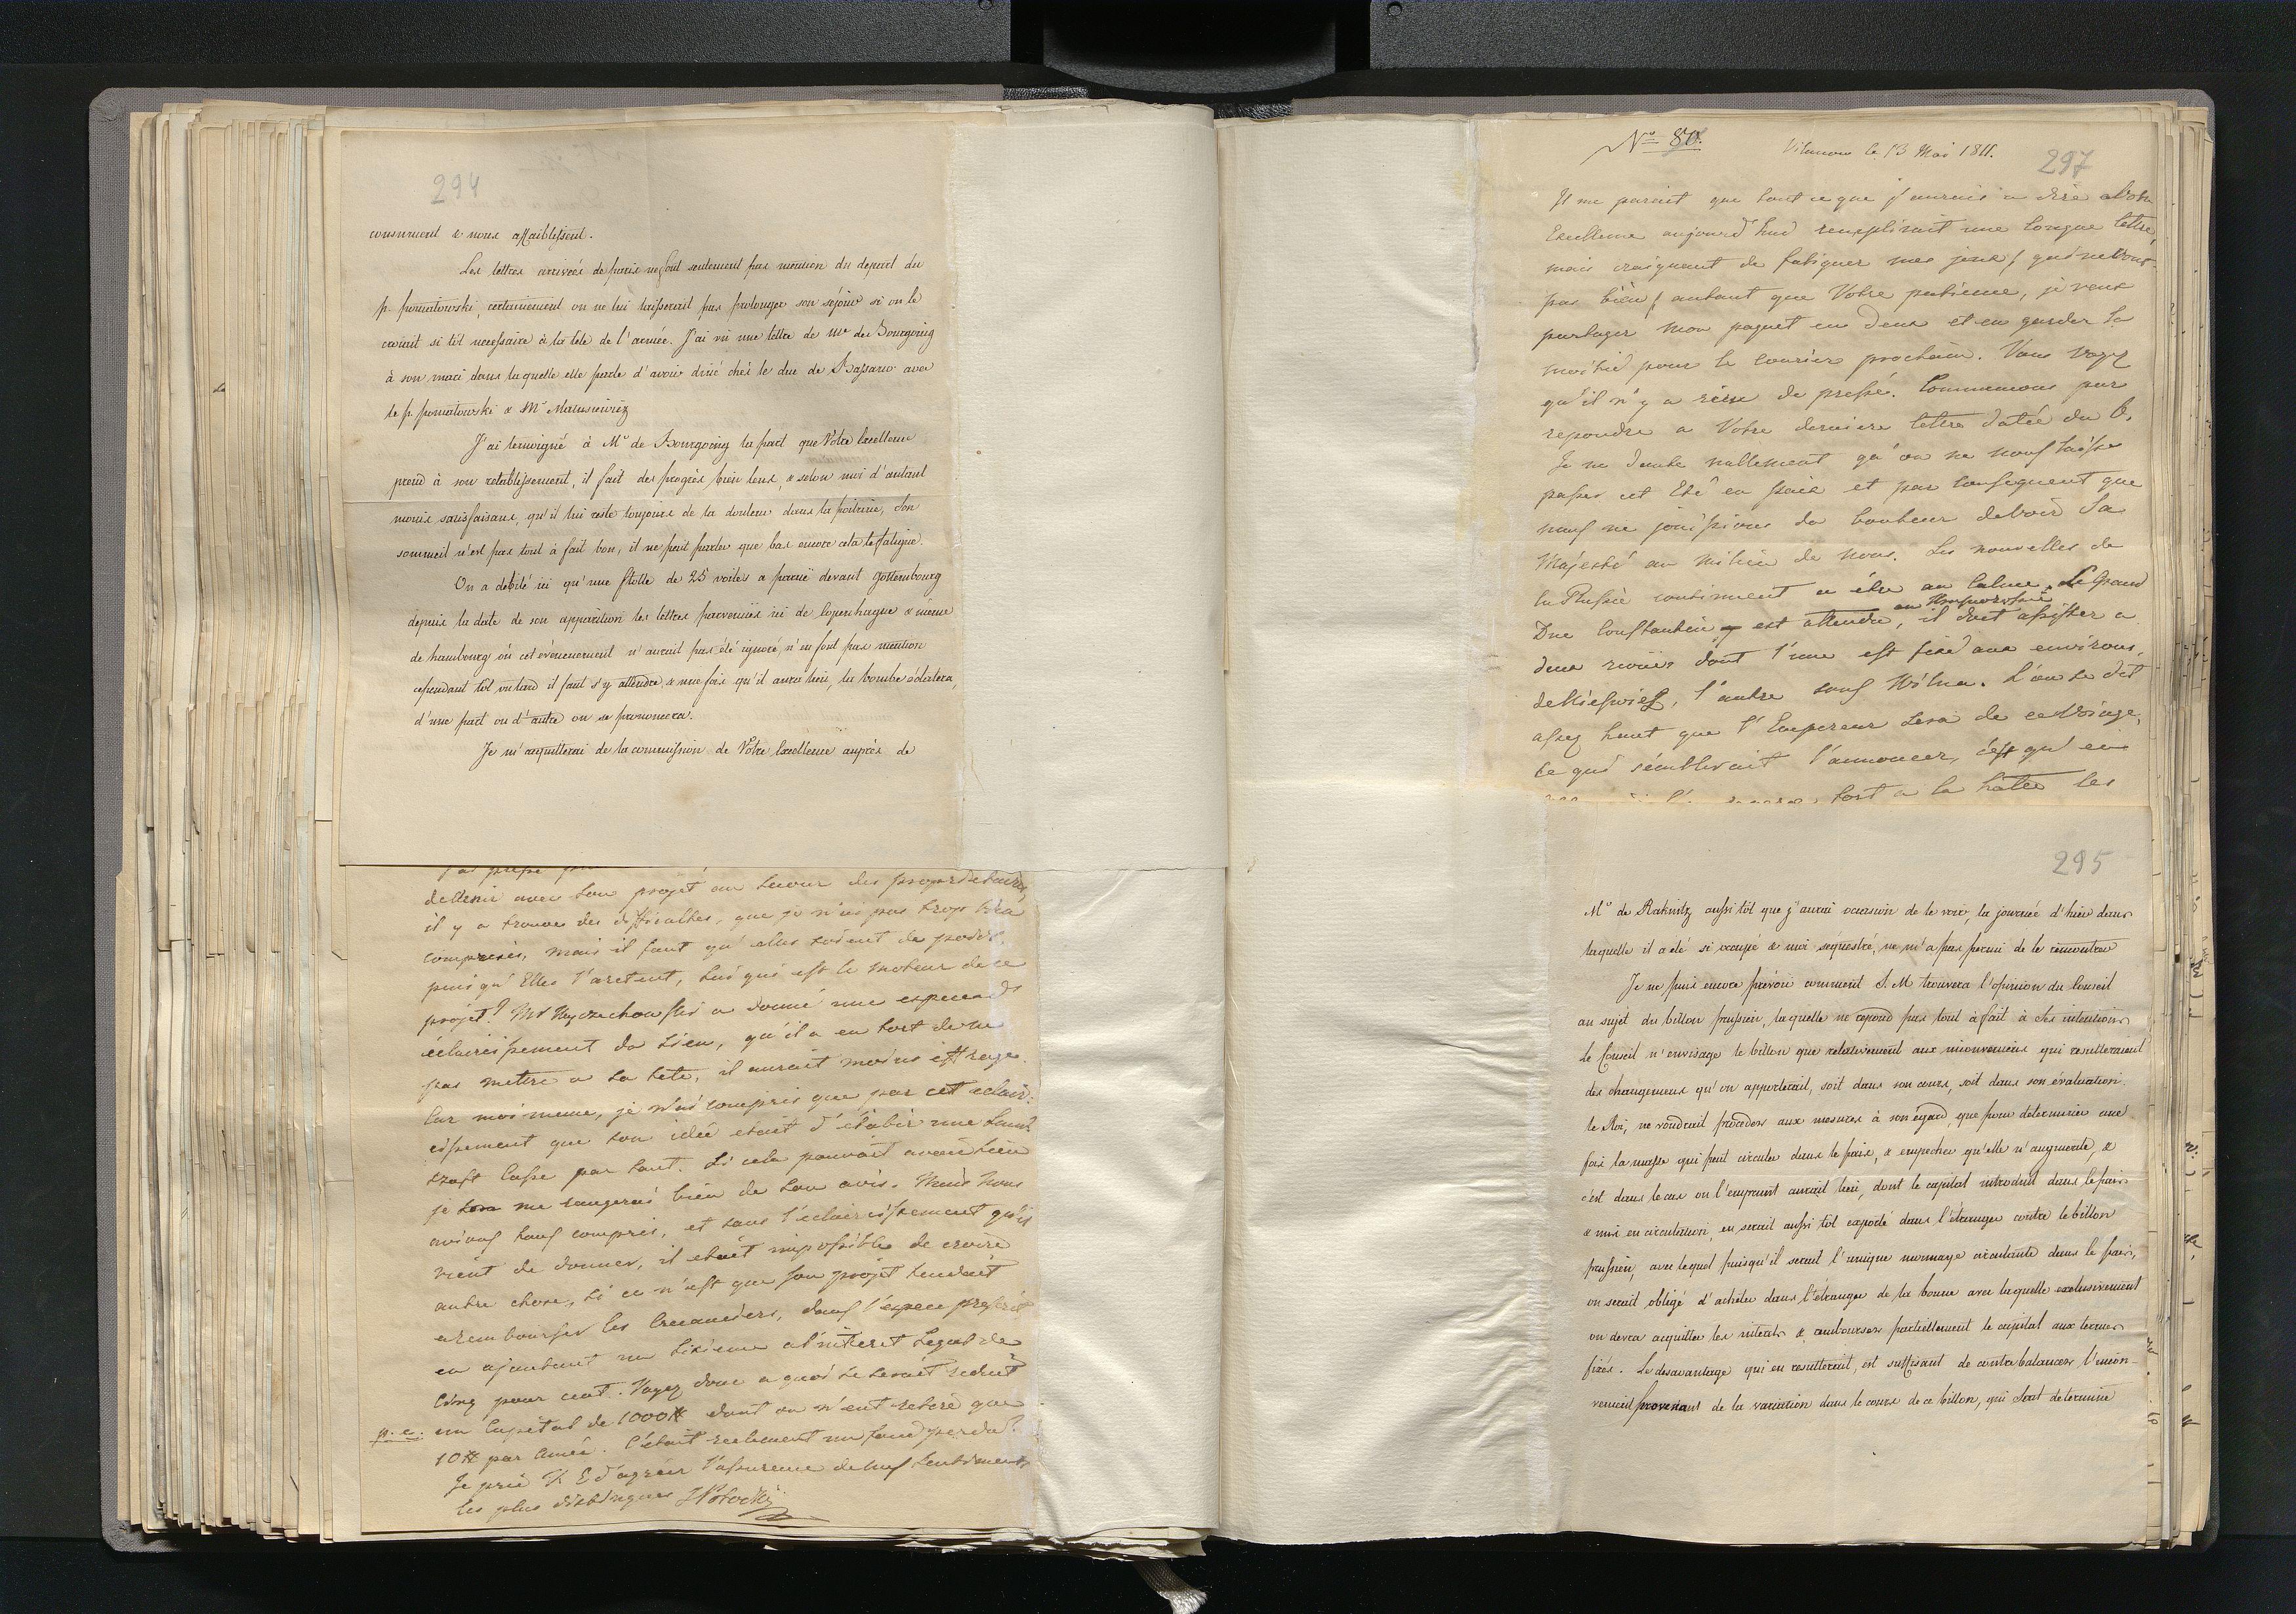 294
consument & nous affaiblissent.
Les lettres arrivées de paris ne font seulement pas mention du depart du
p. poniatowski, certainement on ne lui laisserait pas prolonger son séjour si on le
croiait si tôt necessaire à la tete de l'armée. J'ai vu une lettre de Me de Bourgoing
à son mari dans laquelle elle parle d'avoir diné chés le duc de Bassano avec
le p. poniatowski & Mr Matusiewicz
J'ai temoigné à Mr de Bourgoing la part que Votre Excellence
prend à son retablissement, il fait des progrès bien lens, & selon moi d'autant
moins satisfaisans, qu'il lui reste toujours de la douleur dans la poitrine, son
sommeil n'est pas tout à fait bon, il ne peut parler que bas encore cela le fatigue.
On a debité ici qu'une flotte de 25 voiles a paruë devant gottembourg
depuis la date de son apparition les lettres parvenuës ici de Copenhague & même
de hambourg où cet évènement n'aurait pas été ignoré, n'en font pas mention
cependant tôt ou tard il faut s'y attendre, & une fois qu'il aura lieu, la bombe éclatera,
d'une part ou d'autre on se prononcera.
Je m'acquitterai de la commission de Votre Excellence auprès de
avec son projet au secour des proprietaires,
il y a trouve des difficultes, que je n'ai pas trop bien
comprises, mais il faut qu'elles soient de poids
puis qu'Elles l'aretent, lui qui est le moteur de ce
projet? Mr a donné une espece d'
eclaircissement du sien, qu'il a eu tort de ne
pas mettre a la tete, il aurait moins effraye.
Car moi meme, je n'ai compris que par cet eclair-
cissement que son idée etait d'etablir une
Casse par tout. Si cela pouvait avoir lieu
je me rangerai bien de son avis. Mais nous
avions tous compris, et sans l'eclaircissement qu'il
vient de donner, il etait impossible de croire
autre chose, si ce n'est que son projet tendait
a rembourser les Creanciers, dans l'espace prescrit
en ajoutant un sixieme a l'interet legal de
Cinq pour cent. Voyez donc a quoi se serait reduit
p. e. un Capital de 1000# dont on n'eut retiré que
10# par Année. C'etait reelement un fond perdu?
Je prie V. E d'agréer l'assurence de mes sentiments
les plus distingues
No 80.
Vilanow le 13 Mai 1811.
297
Il me parait que tout ce que j'aurais a dire a Votre
Excellence aujourd'hui remplirait une longue lettre,
mais craignant de fatiguer mes jeux (qui ne vont
pas bien) autant que Votre patience, je veux
partager mon paquet en deux et en garder la
moitié pour le courier prochain. Vous voyez
qu'il n'y a rien de pressé. Commencons par
repondre a Votre derniere lettre datée du 6.
Je ne doute nullement qu'on ne nous laisse
passer cet Eté en paix et par consequent que
nous ne jouissions du bonheur de voir Sa
Majesté au milieu de nous. Les nouvelles de
la Russie continuent a être au Calme. Le Grand
Duc Constantin est attendu, il doit assister a
deux revües dont l'une est fixé aux environs
de Nieswiez, l'autre sous Wilna. L'on se dit
assez haut que l'Empereur sera de ce Voiage,
ce qui semblerait l'annoncer, c'est qu'en
fort a la hâte les
295
Mr de Raknitz aussi tôt que j'aurai occasion de le voir, la journée d'hier dans
laquelle il a été si occupé & moi sequestré, ne m'a pas permi de le rencontrer
Je ne puis encore prévoir comment S. M trouvera l'opinion du Conseil
au sujet du billon prussien, laquelle ne repond pas tout à fait à Ses intentions
le Conseil n'envisage le billon que relativement aux inconveniens qui resulteraient
des changemens qu'on apporterait, soit dans son cours, soit dans son évaluation.
le Roi, ne voudrait proceder aux mesures à son égard, que pour determiner une
fois la masse qui peut circuler dans le païs, & empecher qu'elle n'augmente, &
c'est dans le cas ou l'emprunt aurait lieu, dont le capital introduit dans le païs
& mis en circulation, en serait aussi tôt exporté dans l'étranger contre le billon
prussien, avec lequel puisqu'il serait l'unique monnaye circulante dans le païs,
on serait obligé d'acheter dans l'étranger de la bonne avec laquelle exclusivement
on devra acquitter les interets & rembourser partiellement le capital aux termes
fixés. Le desavantage qui en resulterait, est suffisant de contrebalancer l'incon-
venient provenant de la variation dans le cours de ce billon, qui serait determiné